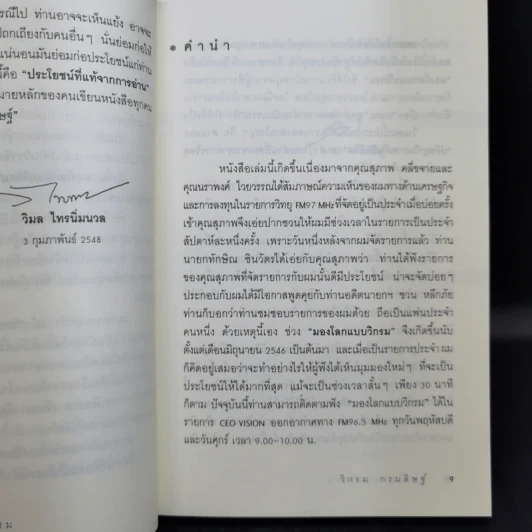 รณีไป ท่านอาจจะเห็นแย้ง อาจจะ
ปถกเถียงกับคนอื่นๆ นั่นย่อมก่อให้
แน่นอนมันย่อมก่อประโยชน์แก่ท่าน
นี้คือ "ประโยชน์ที่แท้จากการอ่าน"
มายหลักของคนเขียนหนังสือทุกคน
ษฐ์"
วิมล ไทรนิ่มนวล
3 กุมภาพันธ์ 2548
• คำนำ
หนังสือเล่มนี้เกิดขึ้นเนื่องมาจากคุณสุภาพ คลี่ขจายและ
คุณนราพงศ์ ไวยวรรณได้สัมภาษณ์ความเห็นของผมทางด้านเศรษฐกิจ
และการลงทุนในรายการวิทยุ FM97 MHzที่จัดอยู่เป็นประจำเมื่อบ่อยครั้ง
เข้าคุณสุภาพจึงเอ่ยปากชวนให้ผมมีช่วงเวลาในรายการเป็นประจำ
สัปดาห์ละหนึ่งครั้ง เพราะวันหนึ่งหลังจากผมจัดรายการแล้ว ท่าน
นายกทักษิณ ชินวัตรได้เอ่ยกับคุณสุภาพว่า ท่านได้ฟังรายการ
ของคุณสุภาพที่จัดรายการกับผมนั้นดีมีประโยชน์ น่าจะจัดบ่อยๆ
ประกอบกับผมได้มีโอกาสพูดคุยกับท่านอดีตนายกฯ ชวน หลีกภัย
ท่านก็บอกว่าท่านชมชอบรายการของผมด้วย ถือเป็นแฟนประจำ
คนหนึ่ง ด้วยเหตุนี้เอง ช่วง "มองโลกแบบวิกรม" จึงเกิดขึ้นนับ
ตั้งแต่เดือนมิถุนายน 2546 เป็นต้นมา และเมื่อเป็นรายการประจำ ผม
ก็คิดอยู่เสมอว่าจะทำอย่างไรให้ผู้ฟังได้เห็นมุมมองใหม่ๆ ที่จะเป็น
ประโยชน์ให้ได้มากที่สุด แม้จะเป็นช่วงเวลาสั้นๆ เพียง 30 นาที
ก็ตาม ปัจจุบันนี้ท่านสามารถติดตามฟัง "มองโลกแบบวิกรม" ได้ใน
รายการ CEO VISION ออกอากาศทาง FM96.5 MHz ทุกวันพฤหัสบดี
และวันศุกร์ เวลา 9.00-10.00 น.
วิกรม กรมดิษฐ์ 9